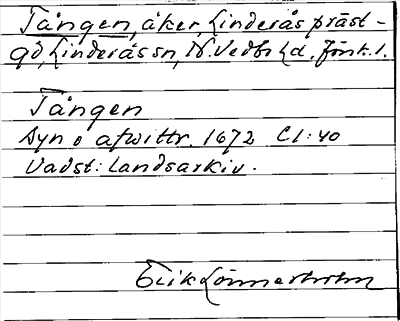 Tången, åker, Linderås präst-
gd, Linderås sn, N. Vedbo hd. Jönk. l.
Tången
Syn o afwittr. 1672 C1:40
Vadst: landsarkiv.
Erik Lönnerholm